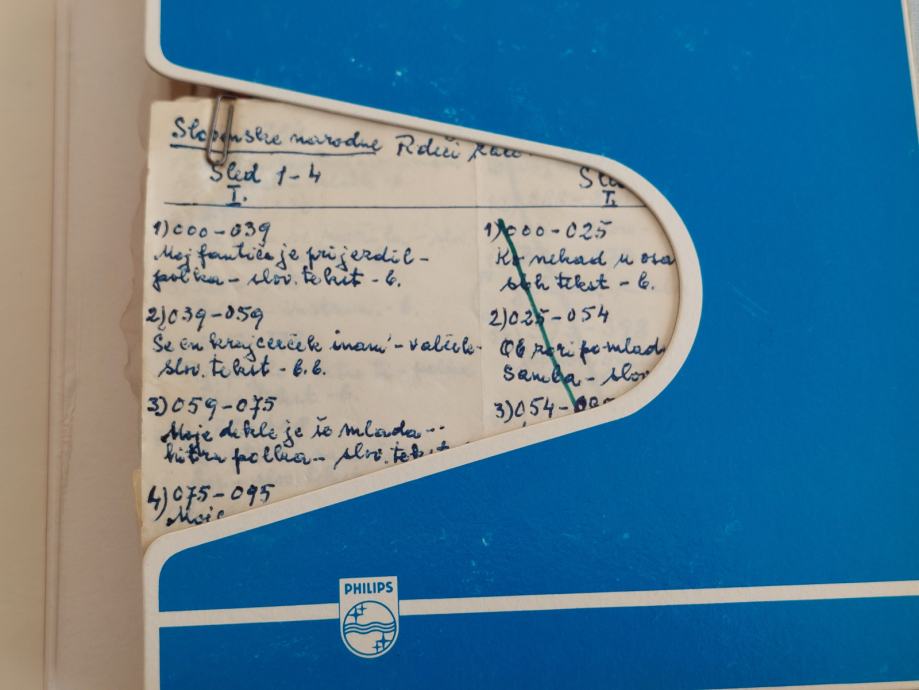 Slovenske narodne Rdeči
Sled 1-4
I.
1) 000-039
Moj fantič je prijezdil -
polka - slov. tekst - 6.
2) 039-059
Še en krajcerček imam' - valček -
slov. tekst - 6.6.
3) 059-075
Moje dekle je še mlada --
hitra polka - slov. tekst
4) 075-095
I.
1) 000-025
Ko nekad u
tekst - 6.
2) 025-054
Ob zori pomlad
Samba - slov
3) 054-
PHILIPS